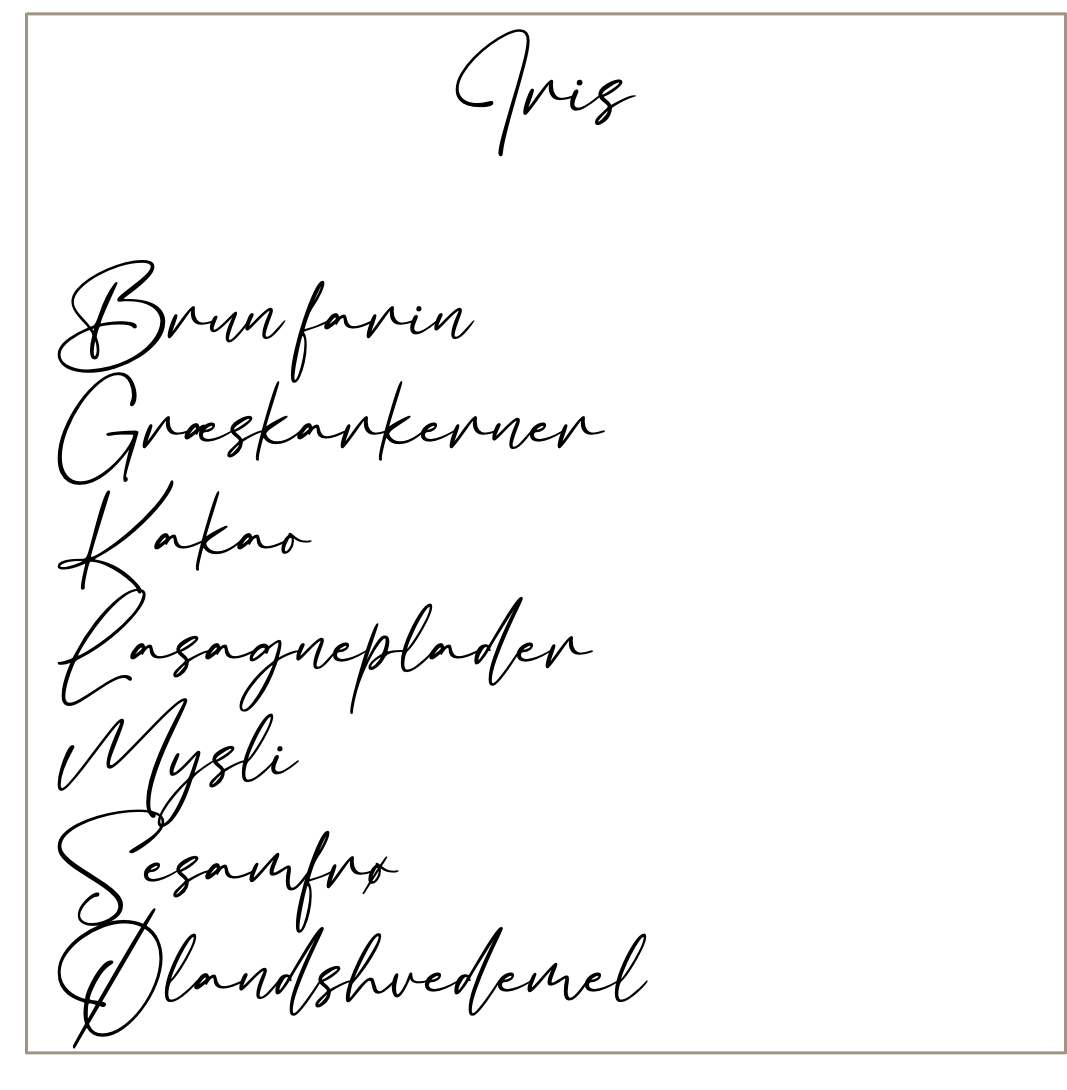 Iris
Brun farin
Græskarkerner
Kakao
Lasagneplader
Mysli
Sesamfrø
Ølandshvedemel